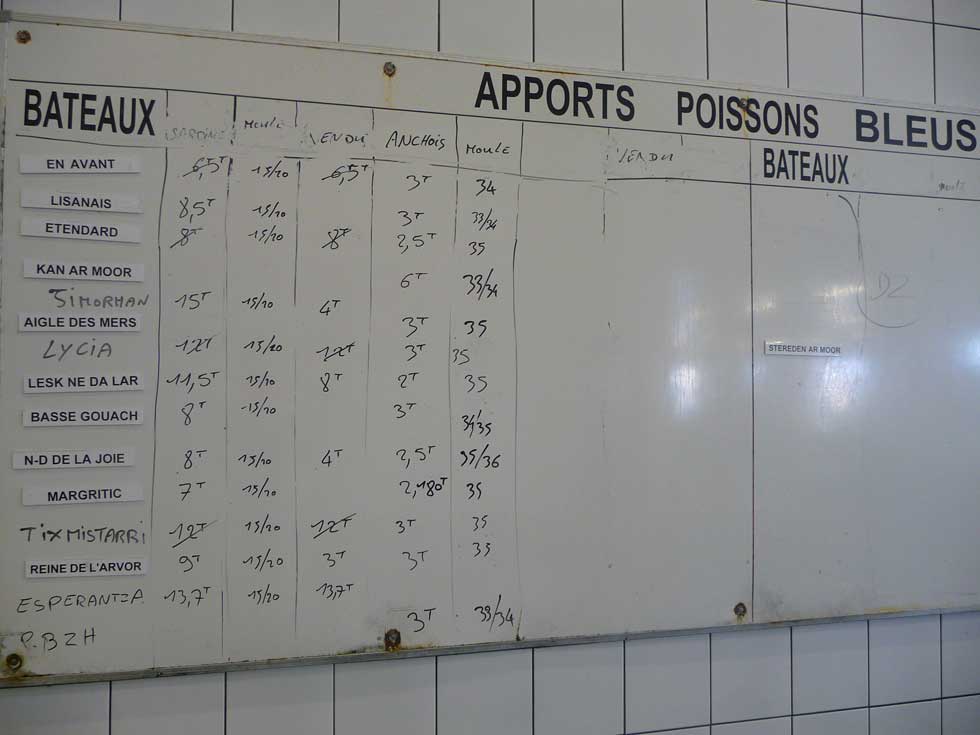 APPORTS POISSONS BLEUS
BATEAUX SARDINE MOULE VENDU ANCHOIS MOULE VENDU BATEAUX
EN AVANT 6,5T 15/20 6,5T 3T 34
LISANAIS 8,5T 15/20 3T 33/34
ETENDARD 8T 15/20 8T 2,5T 35
KAN AR MOOR 6T 33/34
SIMORMAN 15T 15/20 4T
AIGLE DES MERS 3T 35
LYCIA 12T 15/20 12T 3T 35
STEREDEN AR MOOR
LESK NE DA LAR 11,5T 15/20 8T 2T 35
BASSE GOUACH 8T 15/20 3T 34/35
N-D DE LA JOIE 8T 15/20 4T 2,5T 35/36
MARGRITIC 7T 15/20 2,180T 35
TIXMISTARRI 12T 15/20 12T 3T 35
REINE DE L'ARVOR 9T 15/20 3T 3T 35
ESPERANTZA 13,7T 15/20 13,7T
P.BZH 3T 33/34